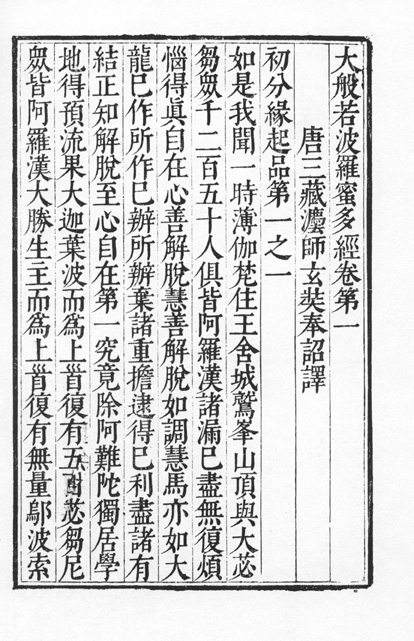 大般若波羅蜜多經卷第一
唐三藏灋師玄奘奉詔譯
初分緣起品第一之一
如是我聞一時薄伽梵住王舍城鷲峯山頂與大苾
芻眾千二百五十人俱皆阿羅漢諸漏已盡無復煩
惱得眞自在心善解脫慧善解脫如調慧馬亦如大
龍已作所作已辦所辦棄諸重擔逮得已利盡諸有
結正知解脫至心自在第一究竟除阿難陀獨居學
地得預流果大迦葉波而爲上首復有五百苾芻尼
眾皆阿羅漢大勝生主而爲上首復有無量鄔波索